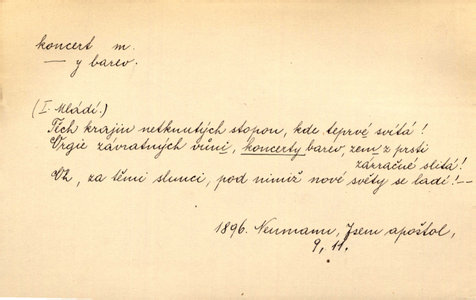 koncert m.
— y barev.
(I. Mládí.)
Těch krajin netknutých stopou, kde teprvé svítá!
Orgie závratných vůní, koncerty barev, zem z prsti
zázračné slitá!
Oh, za těmi slunci, pod nimiž nové světy se ladí! —
1896. Neumann, Jsem apoštol,
9, 11.